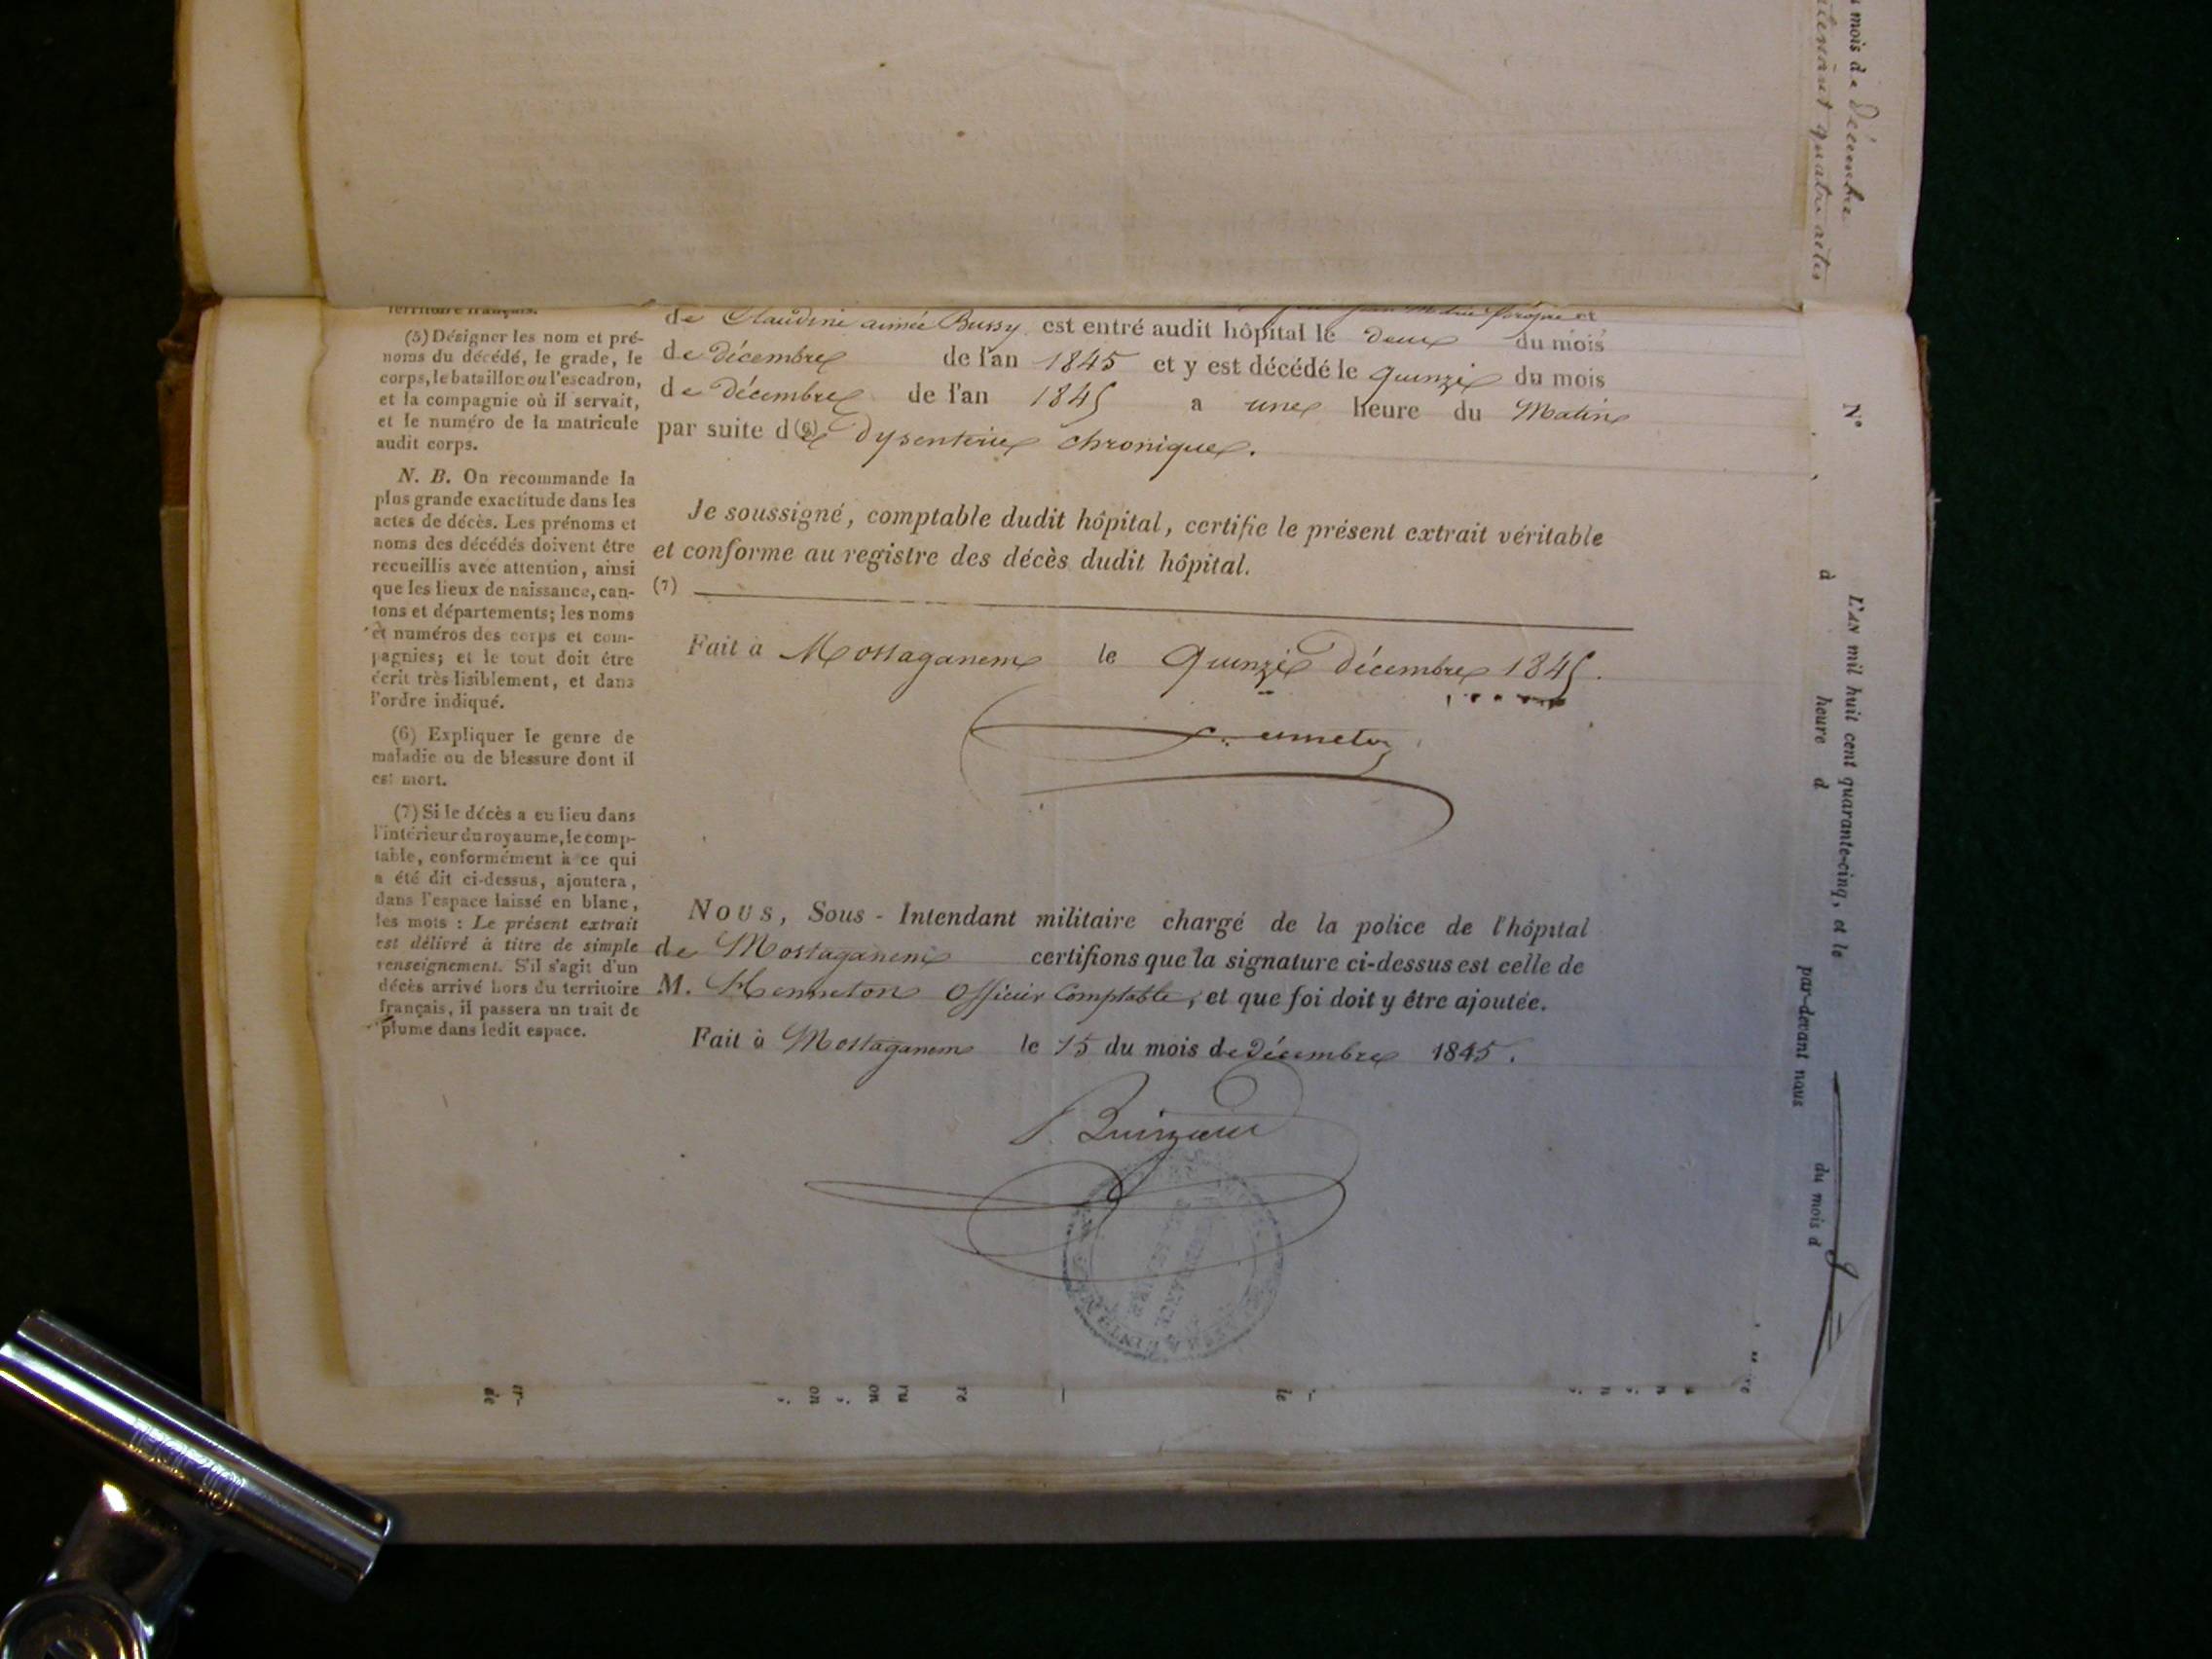 territoire français.
(5) Désigner les nom et pré-
noms du décédé, le grade, le
corps, le bataillon ou l'escadron,
et la compagnie où il servait,
et le numéro de la matricule
audit corps.
N. B. On recommande la
plus grande exactitude dans les
actes de décès. Les prénoms et
noms des décédés doivent être
recueillis avec attention, ainsi
que les lieux de naissance, can-
tons et départements; les noms
et numéros des corps et com-
pagnies; et le tout doit être
écrit très lisiblement, et dans
l'ordre indiqué.
(6) Expliquer le genre de
maladie ou de blessure dont il
est mort.
(7) Si le décès a eu lieu dans
l'intérieur du royaume, le comp-
table, conformément à ce qui
a été dit ci-dessus, ajoutera,
dans l'espace laissé en blanc,
les mots : Le présent extrait
est délivré à titre de simple
renseignement. S'il s'agit d'un
décès arrivé hors du territoire
français, il passera un trait de
plume dans ledit espace.
de Claudine aimée Bussy est entré audit hôpital le deux du mois
de décembre de l'an 1845 et y est décédé le quinze du mois
de décembre de l'an 1845 a une heure du Matin
par suite d(6)e dysenterie chronique.
Je soussigné, comptable dudit hôpital, certifie le présent extrait véritable
et conforme au registre des décès dudit hôpital.
(7)
Fait à Mostaganem le Quinze décembre 1845.
Nous, Sous-Intendant militaire chargé de la police de l'hôpital
de Mostaganem certifions que la signature ci-dessus est celle de
M. Henneton Officier Comptable, et que foi doit y être ajoutée.
Fait à Mostaganem le 15 du mois de Décembre 1845.
mois de Décembre
quatre actes
N°
L'AN mil huit cent quarante-cinq, et le
à heure d
par-devant nous
du mois d